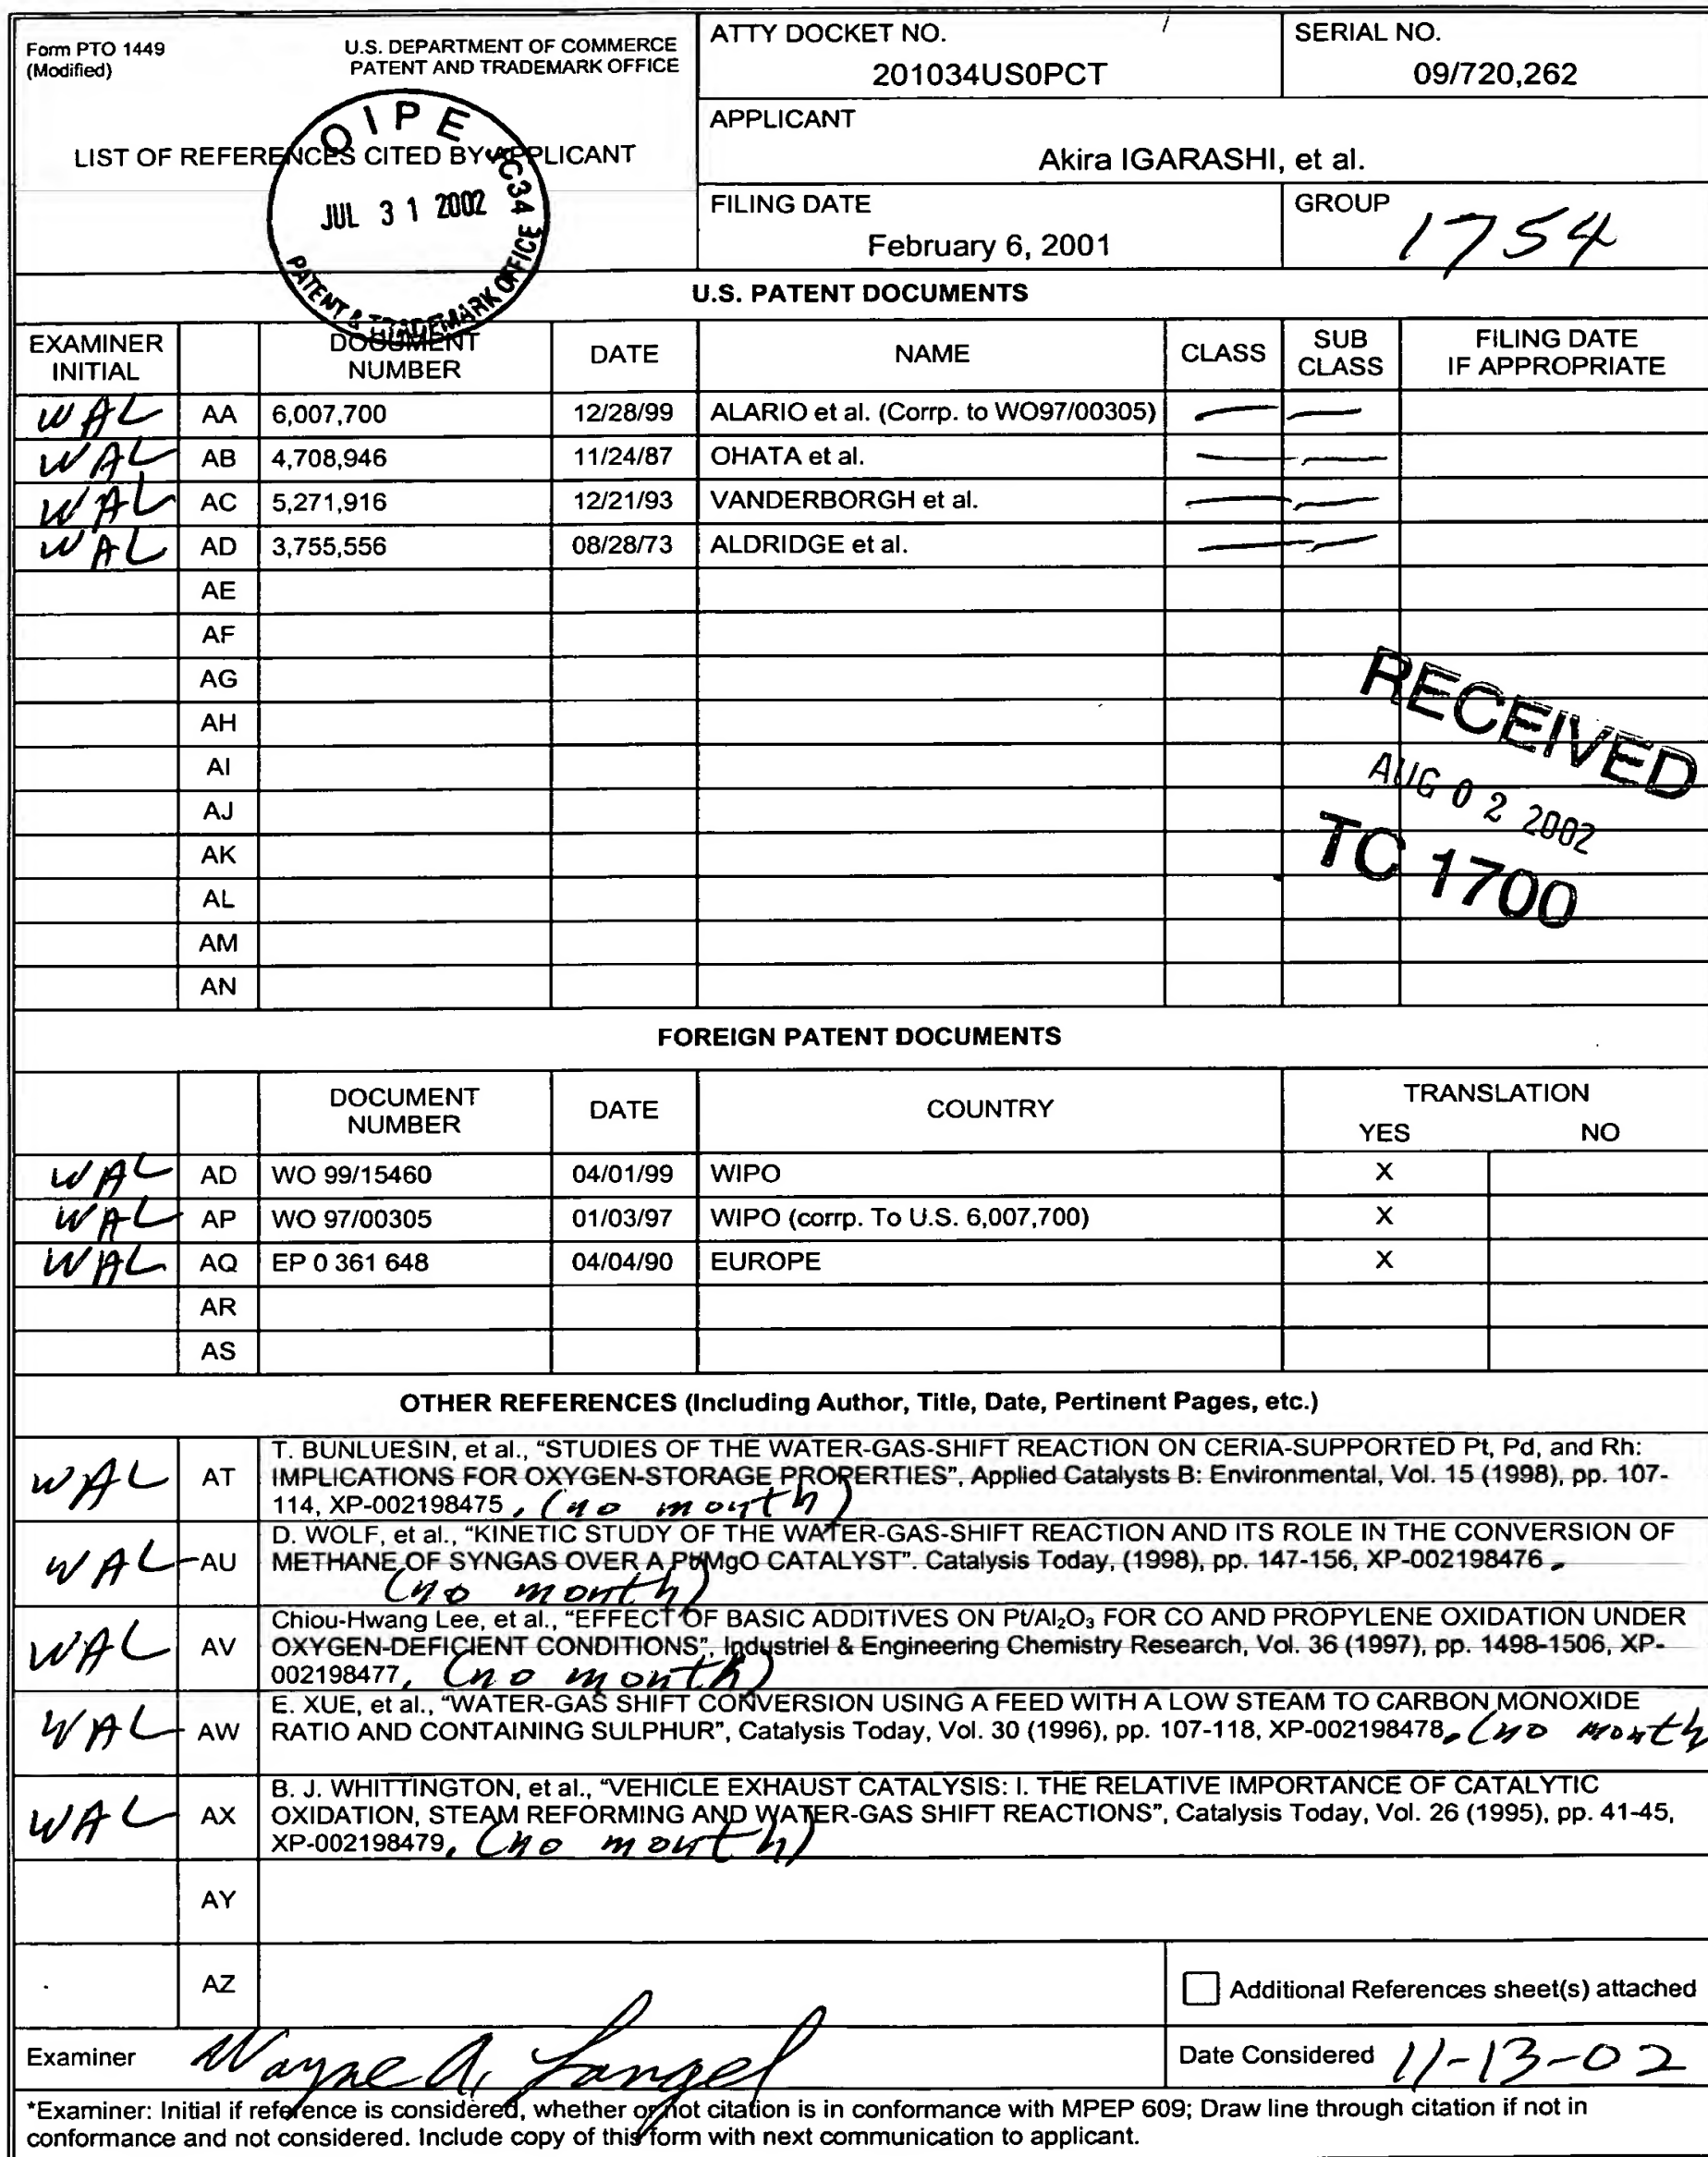 Form PTO 1449
(Modified)
U.S. DEPARTMENT OF COMMERCE
PATENT AND TRADEMARK OFFICE
ATTY DOCKET NO.
201034US0PCT
SERIAL NO.
09/720,262
LIST OF REFERENCES CITED BY APPLICANT
OIPE JC34
JUL 31 2002
PATENT & TRADEMARK OFFICE
APPLICANT
Akira IGARASHI, et al.
FILING DATE
February 6, 2001
GROUP
1754
U.S. PATENT DOCUMENTS
EXAMINER INITIAL DOCUMENT NUMBER DATE NAME CLASS SUB CLASS FILING DATE IF APPROPRIATE
WAL AA 6,007,700 12/28/99 ALARIO et al. (Corrp. to WO97/00305)
WAL AB 4,708,946 11/24/87 OHATA et al.
WAL AC 5,271,916 12/21/93 VANDERBORGH et al.
WAL AD 3,755,556 08/28/73 ALDRIDGE et al.
AE
AF
AG
AH
AI
AJ
AK
AL
AM
AN
RECEIVED
AUG 02 2002
TC 1700
FOREIGN PATENT DOCUMENTS
DOCUMENT NUMBER DATE COUNTRY TRANSLATION
YES NO
WAL AD WO 99/15460 04/01/99 WIPO X
WAL AP WO 97/00305 01/03/97 WIPO (corrp. To U.S. 6,007,700) X
WAL AQ EP 0 361 648 04/04/90 EUROPE X
AR
AS
OTHER REFERENCES (Including Author, Title, Date, Pertinent Pages, etc.)
WAL AT T. BUNLUESIN, et al., “STUDIES OF THE WATER-GAS-SHIFT REACTION ON CERIA-SUPPORTED Pt, Pd, and Rh:
IMPLICATIONS FOR OXYGEN-STORAGE PROPERTIES”, Applied Catalysts B: Environmental, Vol. 15 (1998), pp. 107-
114, XP-002198475, (no month)
WAL AU D. WOLF, et al., “KINETIC STUDY OF THE WATER-GAS-SHIFT REACTION AND ITS ROLE IN THE CONVERSION OF
METHANE OF SYNGAS OVER A Pt/MgO CATALYST”. Catalysis Today, (1998), pp. 147-156, XP-002198476.
(no month)
WAL AV Chiou-Hwang Lee, et al., “EFFECT OF BASIC ADDITIVES ON Pt/Al₂O₃ FOR CO AND PROPYLENE OXIDATION UNDER
OXYGEN-DEFICIENT CONDITIONS”, Industriel & Engineering Chemistry Research, Vol. 36 (1997), pp. 1498-1506, XP-
002198477, (no month)
WAL AW E. XUE, et al., “WATER-GAS SHIFT CONVERSION USING A FEED WITH A LOW STEAM TO CARBON MONOXIDE
RATIO AND CONTAINING SULPHUR”, Catalysis Today, Vol. 30 (1996), pp. 107-118, XP-002198478, (no month
WAL AX B. J. WHITTINGTON, et al., “VEHICLE EXHAUST CATALYSIS: I. THE RELATIVE IMPORTANCE OF CATALYTIC
OXIDATION, STEAM REFORMING AND WATER-GAS SHIFT REACTIONS”, Catalysis Today, Vol. 26 (1995), pp. 41-45,
XP-002198479, (no month)
AY
AZ
Additional References sheet(s) attached
Examiner Wayne A. Langel
Date Considered 11-13-02
*Examiner: Initial if reference is considered, whether or not citation is in conformance with MPEP 609; Draw line through citation if not in
conformance and not considered. Include copy of this form with next communication to applicant.